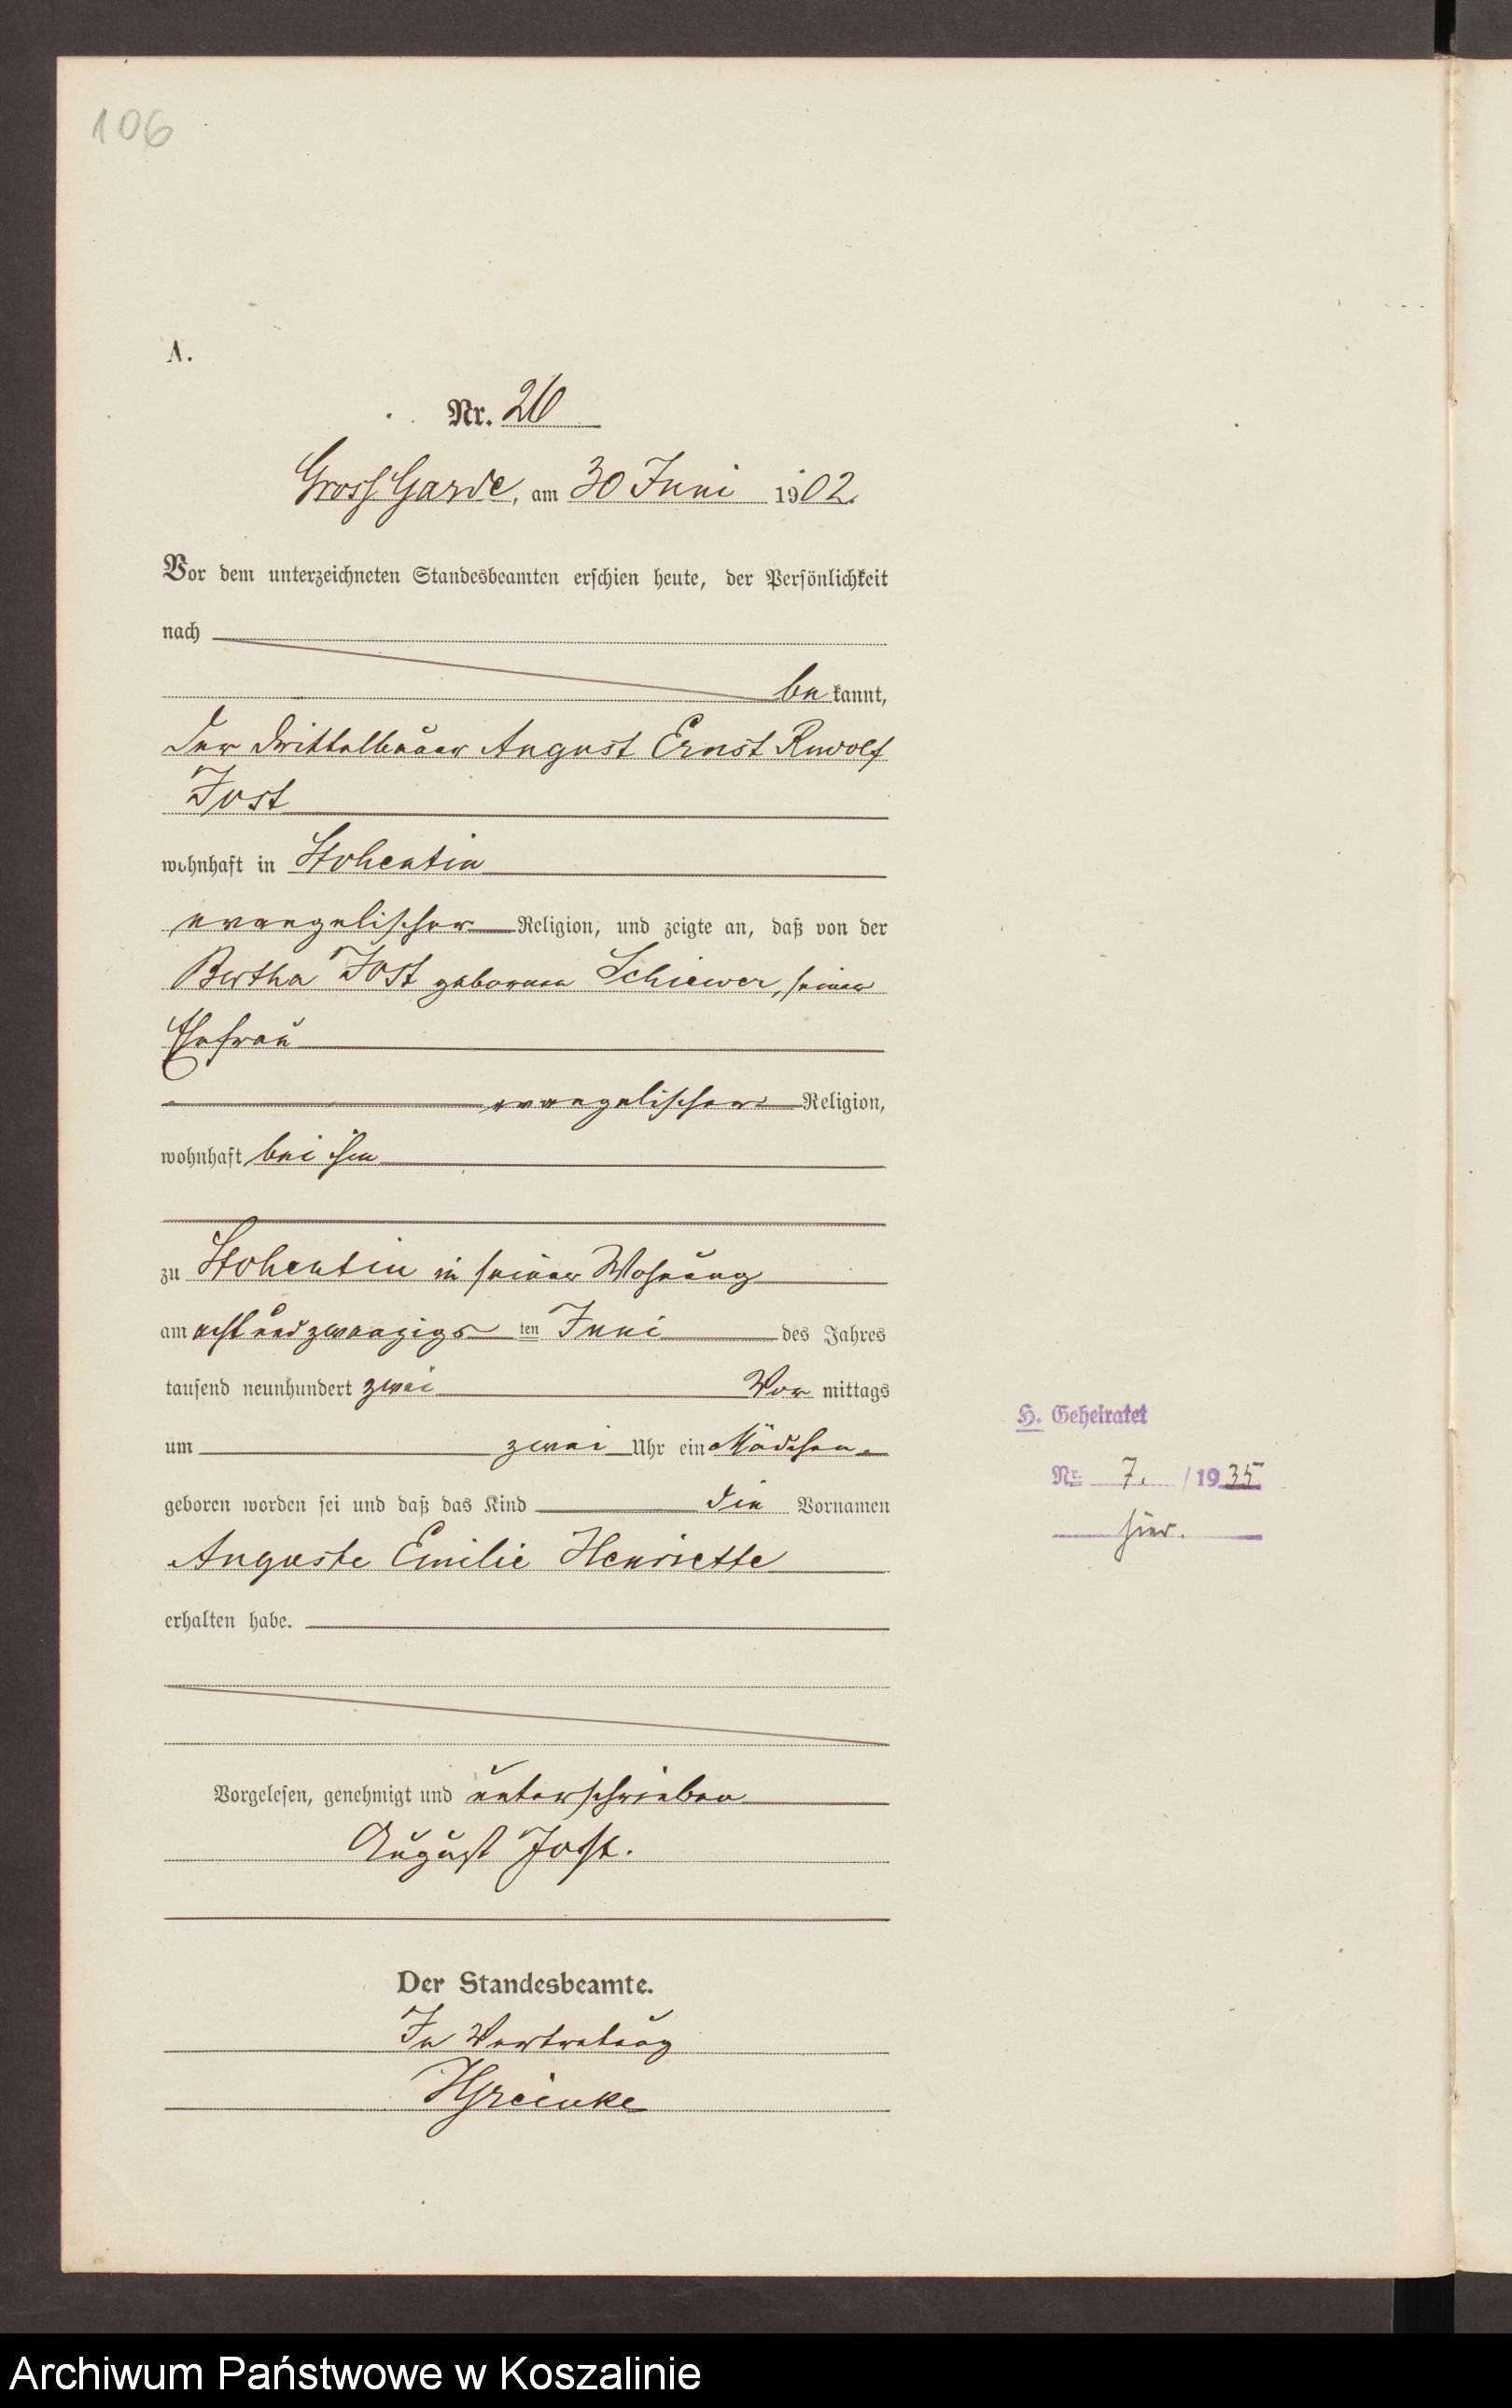 106
A.
Nr. 26
Gross Garde, am 30 Juni 1902.
Vor dem unterzeichneten Standesbeamten erschien heute, der Persönlichkeit
nach
be kannt,
der Drittelbauer August Ernst Rudolf
Jost
wohnhaft in Stohentin
evangelischer Religion, und zeigte an, daß von der
Bertha Jost geborenen Schiewer, seiner
Ehefrau
evangelischer Religion,
wohnhaft bei ihm
zu Stohentin in seiner Wohnung
am achtundzwanzigs ten Juni des Jahres
tausend neunhundert zwei Vor mittags
um zwei Uhr ein Mädchen
geboren worden sei und daß das Kind die Vornamen
Auguste Emilie Henriette
erhalten habe.
Vorgelesen, genehmigt und unterschrieben
August Jost.
Der Standesbeamte.
In Vertretung
H. Geheiratet
Nr. 7. / 1935
hier.
Archiwum Państwowe w Koszalinie